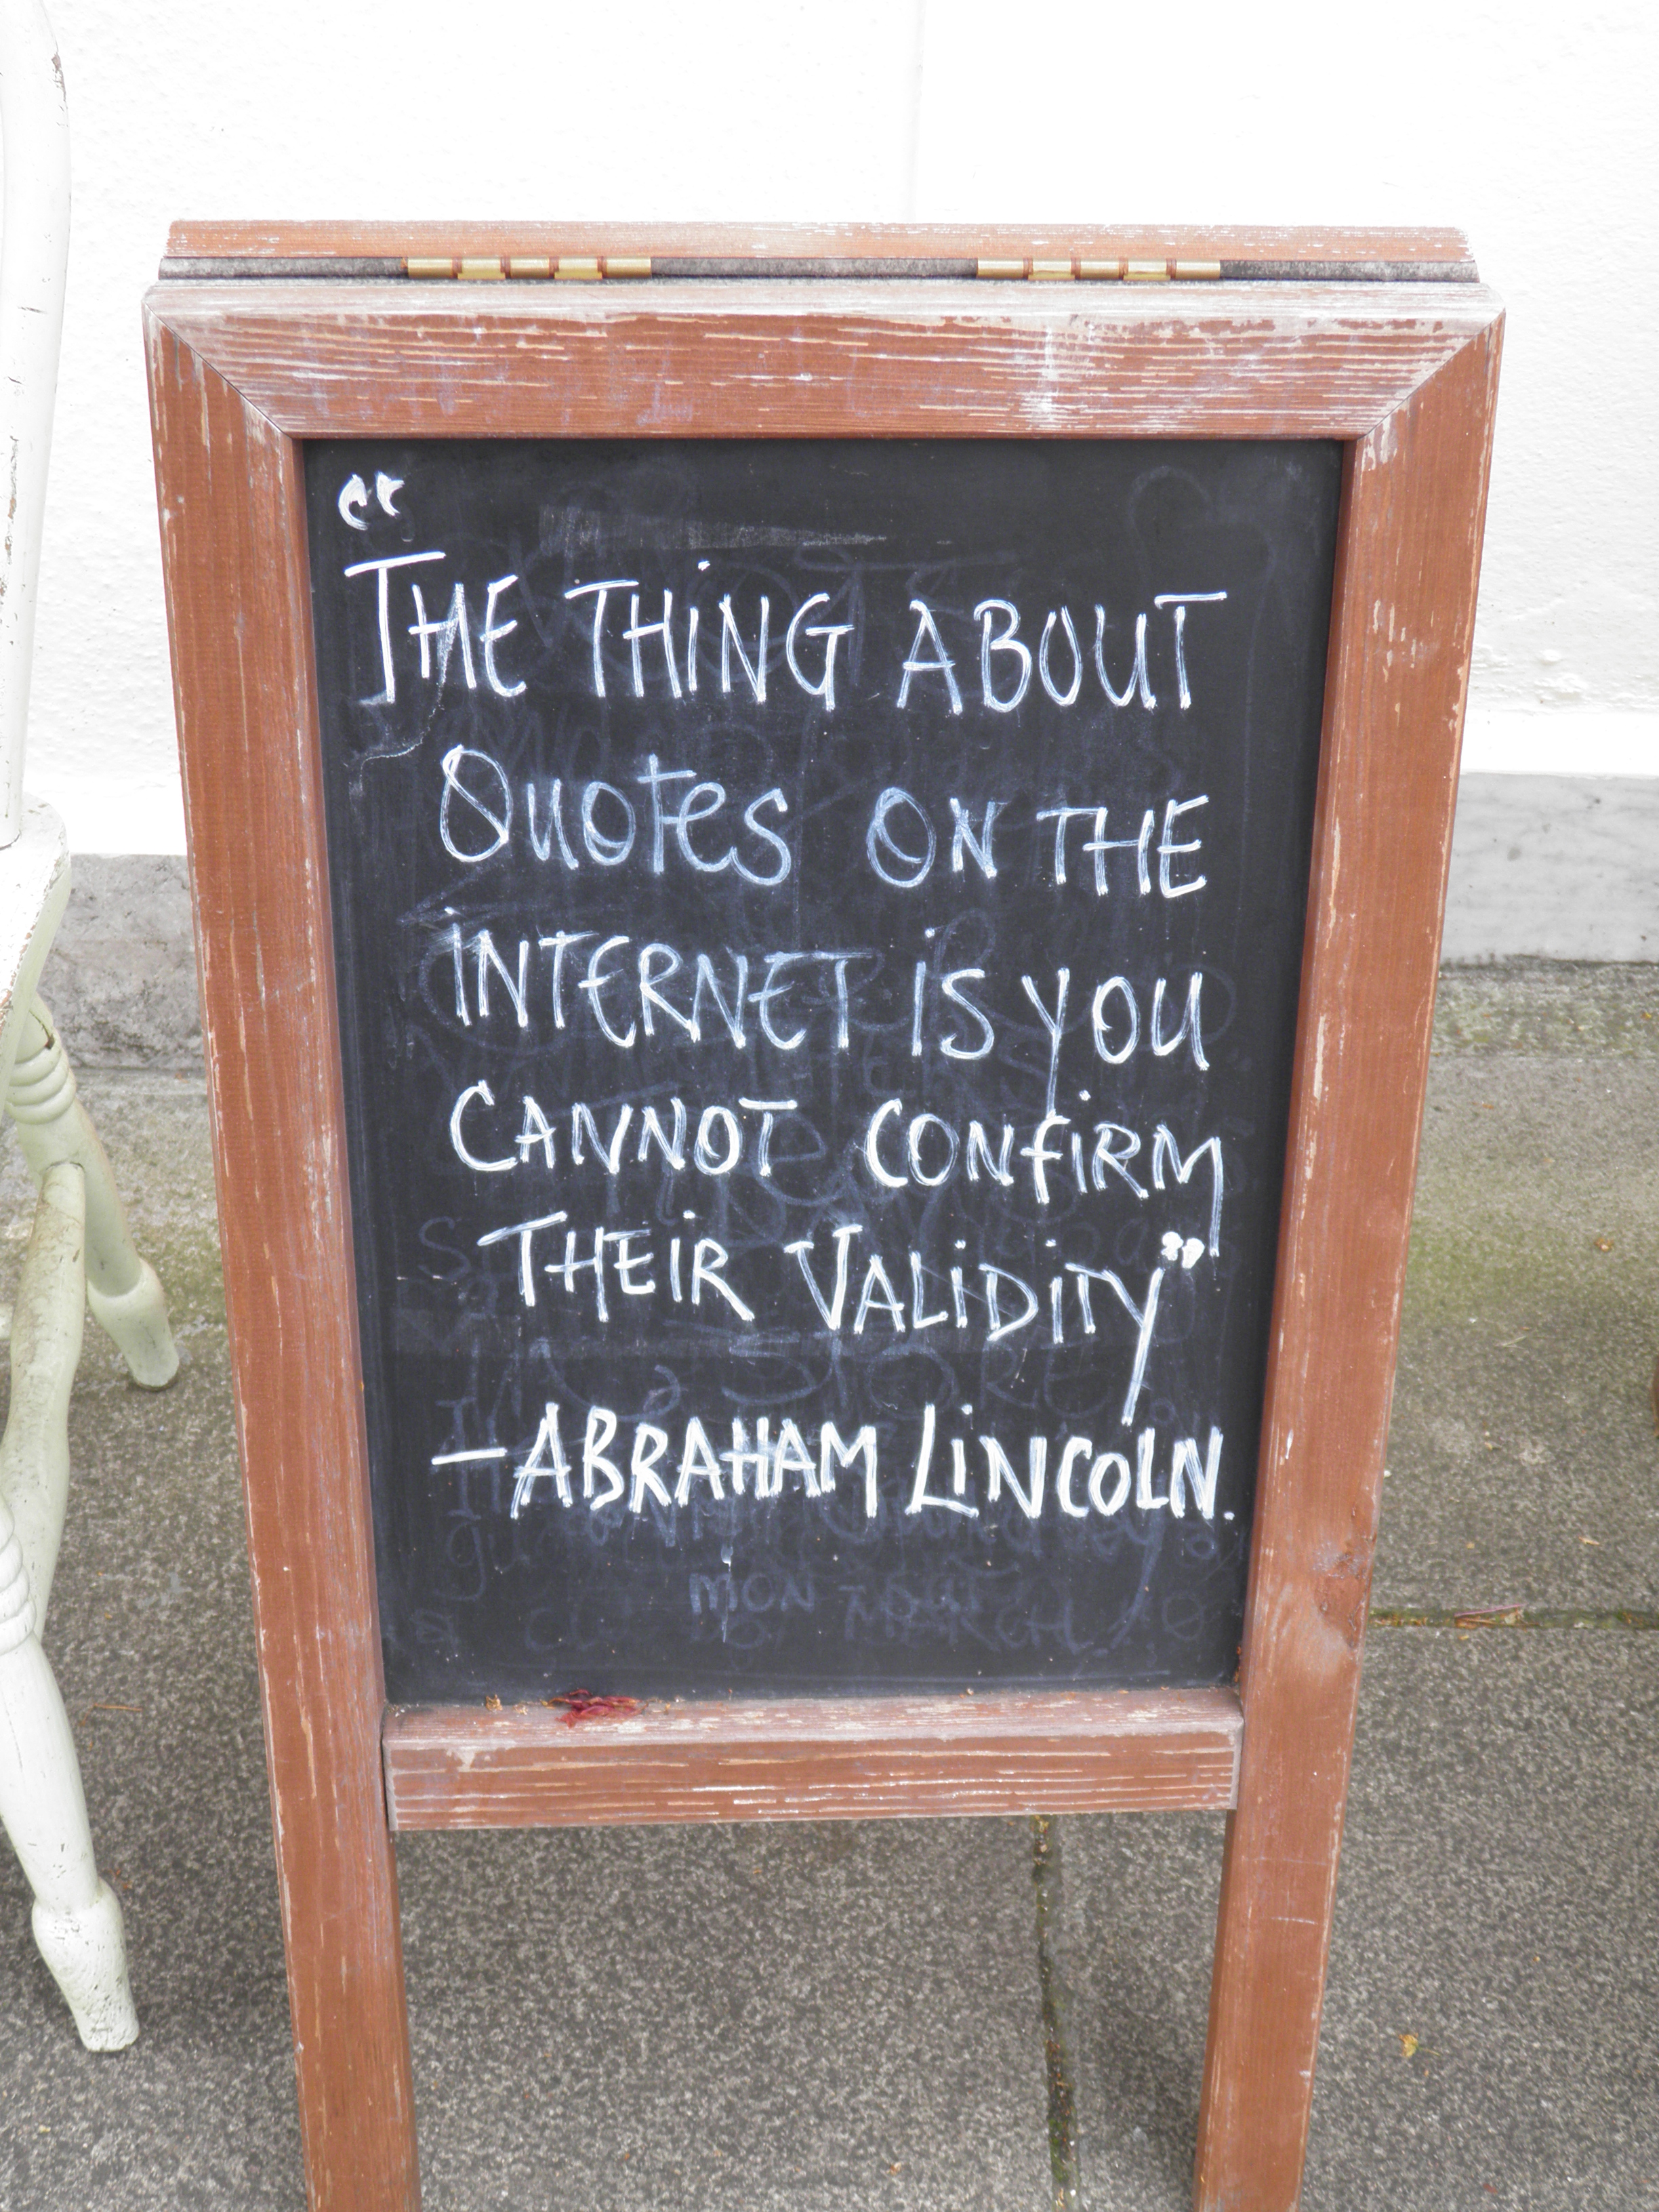 “
THE THING ABOUT
QUOTES ON THE
INTERNET IS YOU
CANNOT CONFIRM
THEIR VALIDITY”
—ABRAHAM LINCOLN.
MON
MARCH